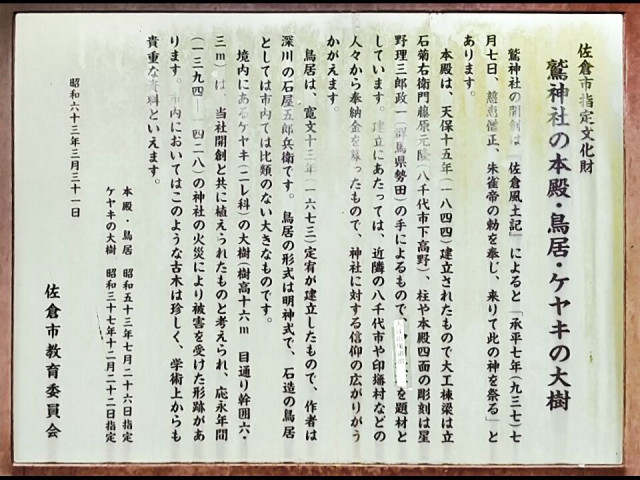 佐倉市指定文化財
鷲神社の本殿・鳥居・ケヤキの大樹
鷲神社の開創は「佐倉風土記」によると「承平七年(九三七)七
月七日、慈恵僧正、朱雀帝の勅を奉じ、来りて此の神を祭る」と
あります。
本殿は、天保十五年(一八四四)建立されたもので大工棟梁は立
石菊右衛門藤原元隆(八千代市下高野)、柱や本殿四面の彫刻は星
野理三郎政一(群馬県勢田)の手によるもので、を題材と
しています。建立にあたっては、近隣の八千代市や印旛村などの
人々から奉納金を募ったもので、神社に対する信仰の広がりがう
かがえます。
鳥居は、寛文十三年(一六七三)定宥が建立したもので、作者は
深川の石屋五郎兵衛です。鳥居の形式は明神式で、石造の鳥居
としては市内では比類のない大きなものです。
境内にあるケヤキ(ニレ科)の大樹(樹高十六m 目通り幹囲六・
三m)は、当社開創と共に植えられたものと考えられ、応永年間
(一三九四―一四二八)の神社の火災により被害を受けた形跡があ
ります。市内においてはこのような古木は珍しく、学術上からも
貴重な資料といえます。
昭和六十三年三月三十一日
本殿・鳥居 昭和五十三年七月二十六日指定
ケヤキの大樹 昭和三十七年十二月二十二日指定
佐倉市教育委員会